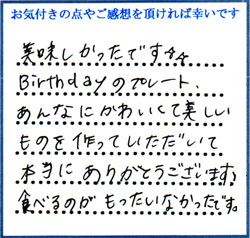 お気付きの点やご感想を頂ければ幸いです
美味しかったです
Birthdayのプレート、
あんなにかわいくて美しい
ものを作っていただいて
本当にありがとうございます。
食べるのがもったいなかったです。